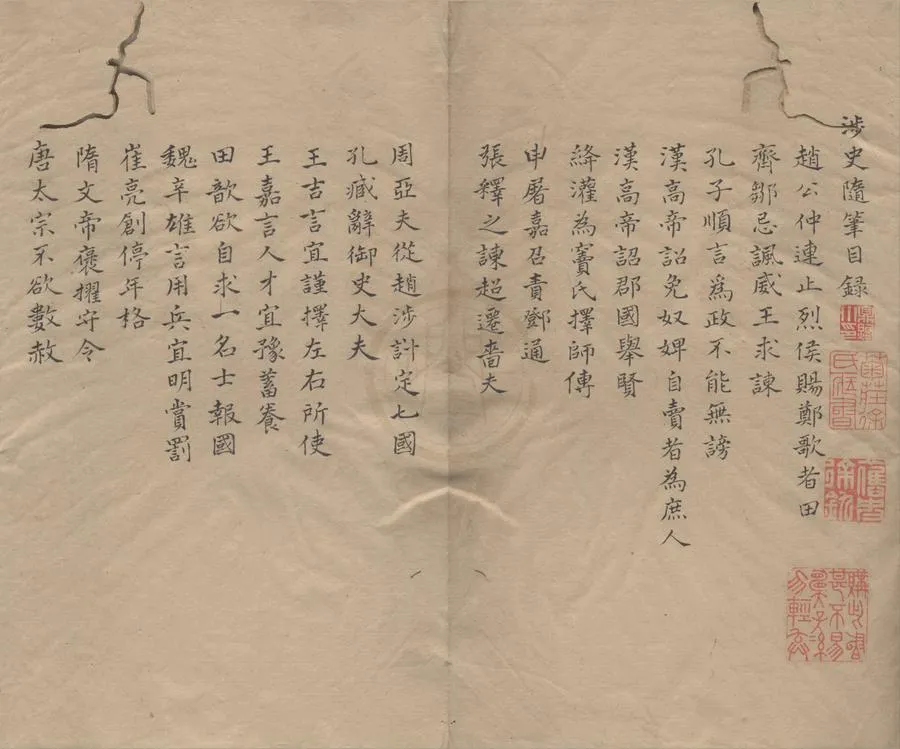 涉史隨筆目錄
趙公仲連止烈侯賜鄭歌者田
齊鄒忌諷威王求諫
孔子順言為政不能無謗
漢高帝詔免奴婢自賣者為庶人
漢高帝詔郡國舉賢
絳灌為竇氏擇師傅
申屠嘉召責鄧通
張釋之諫超遷嗇夫
周亞夫從趙涉計定七國
孔臧辭御史大夫
王吉言宜謹擇左右所使
王嘉言人才宜豫蓄養
田歆欲自求一名士報國
魏辛雄言用兵宜明賞罰
崔亮創停年格
隋文帝褒擢守令
唐太宗不欲數赦
菊莊徐氏藏書
購此書甚不易
遺子孫勿輕棄